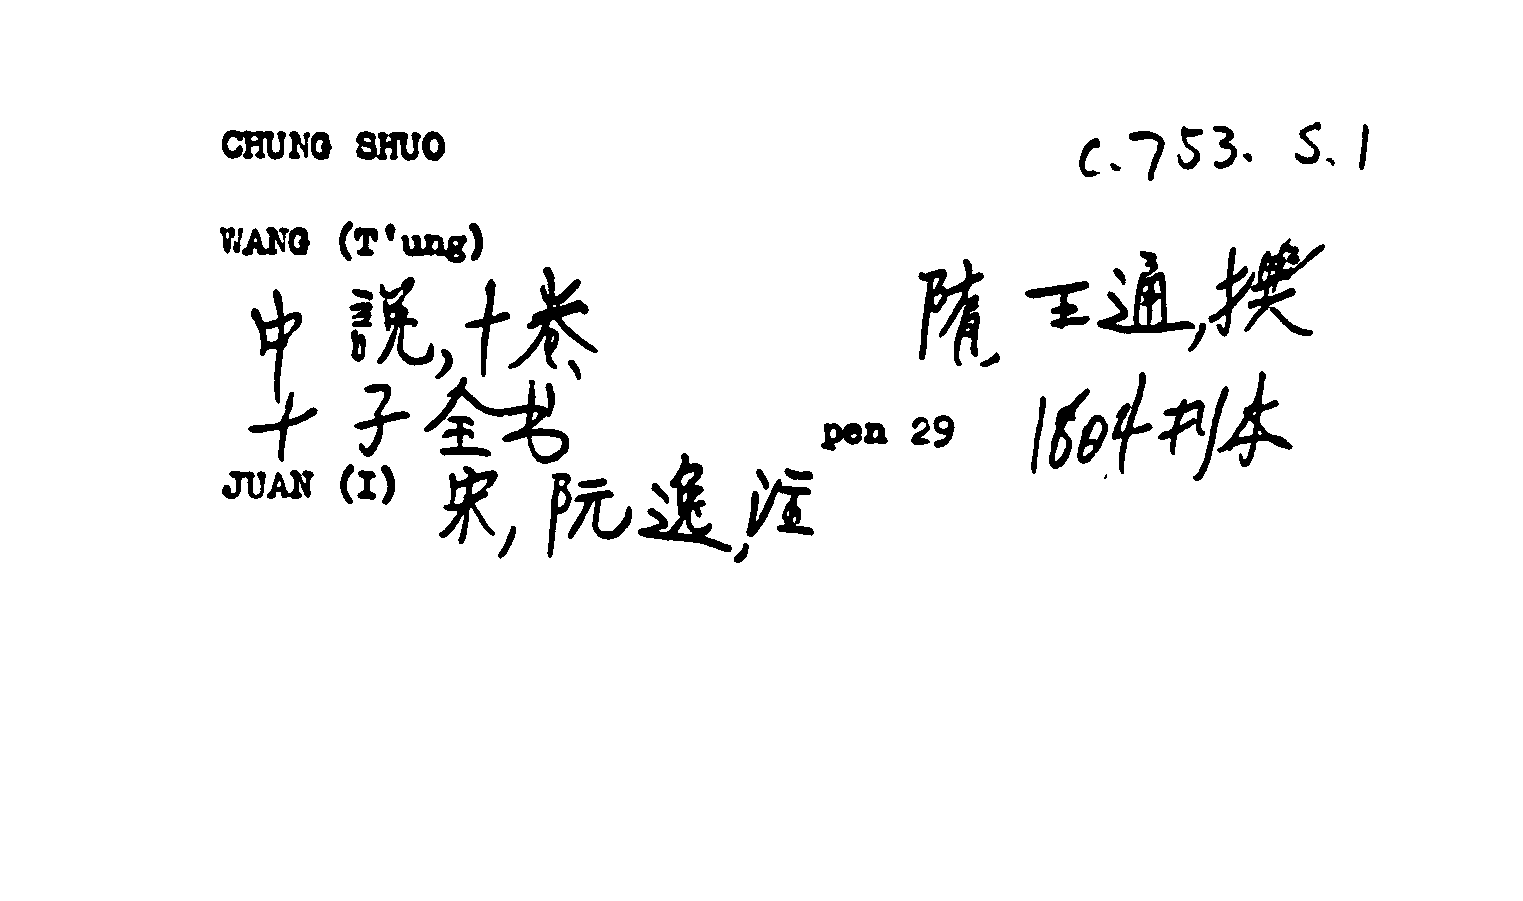 CHUNG SHUO c.753. S.1
WANG (T'ung)
中 說,十卷、 隋、王通,撰
十子全书 pen 29 1804刊本
JUAN (I) 宋,阮逸,注